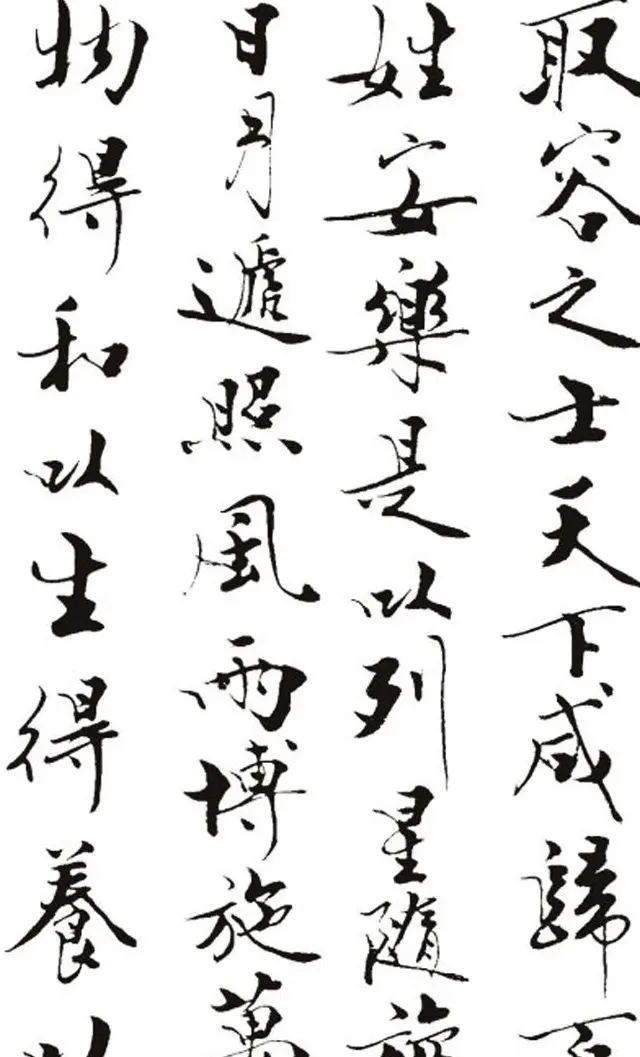 取容之士天下咸歸百
姓安樂是以列星隨旋
日月遞照風雨博施萬
物得和以生得養以